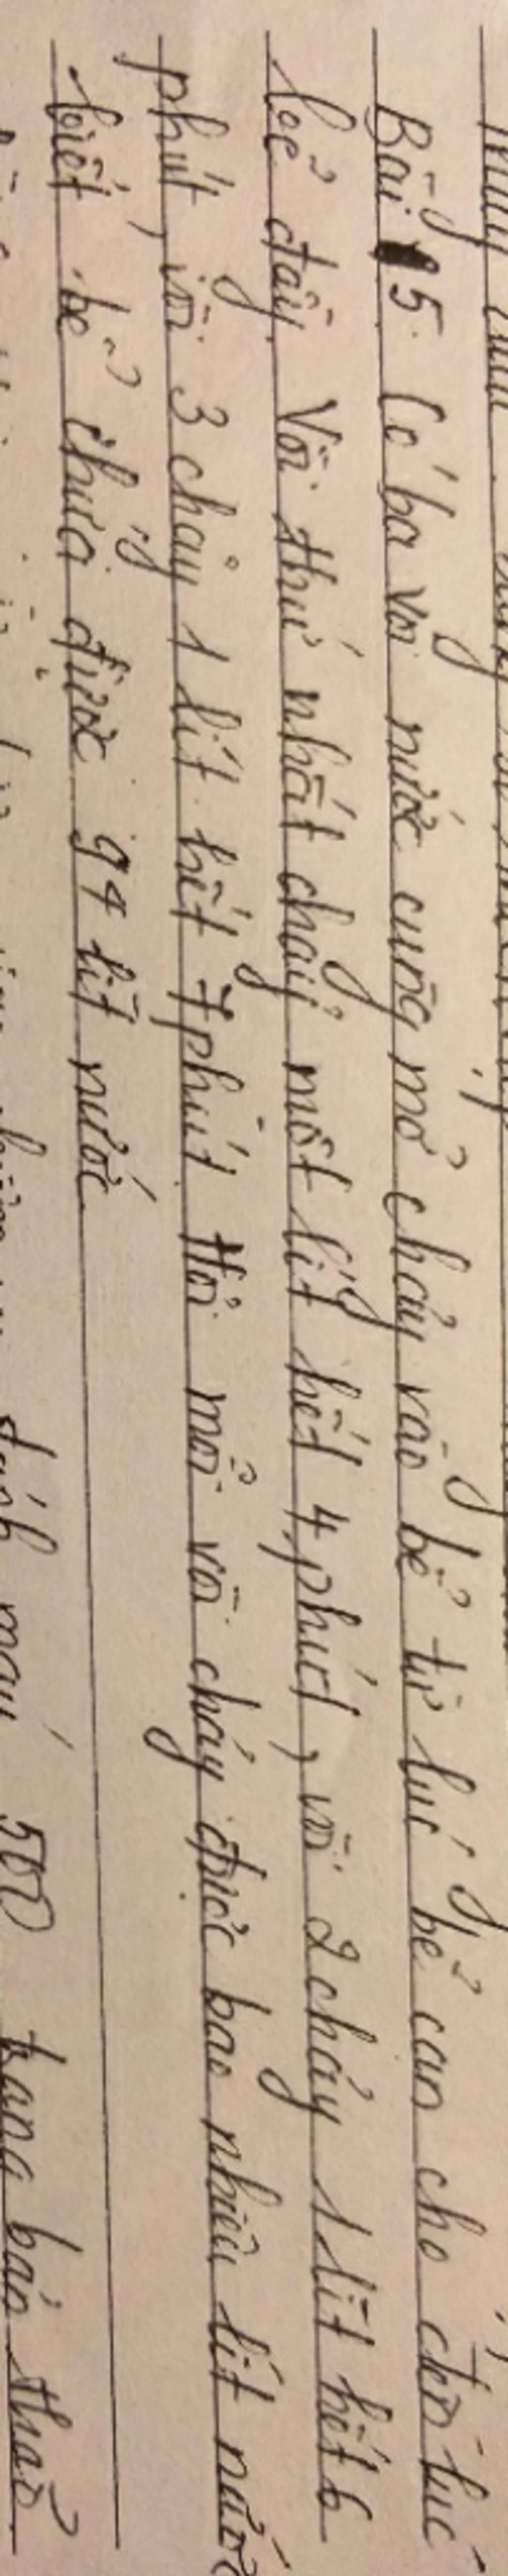 Bài 5. Có ba vòi nước cùng mở chảy vào bể từ lúc bể cạn cho đến lúc
bể đầy. Vòi thứ nhất chảy một lít hết 4 phút, vòi 2 chảy 1 lít hết 6
phút, vòi 3 chảy 1 lít hết 7 phút Hỏi mỗi vòi chảy được bao nhiêu lít nước
biết bể chứa được 94 lít nước
500 trang bản thảo